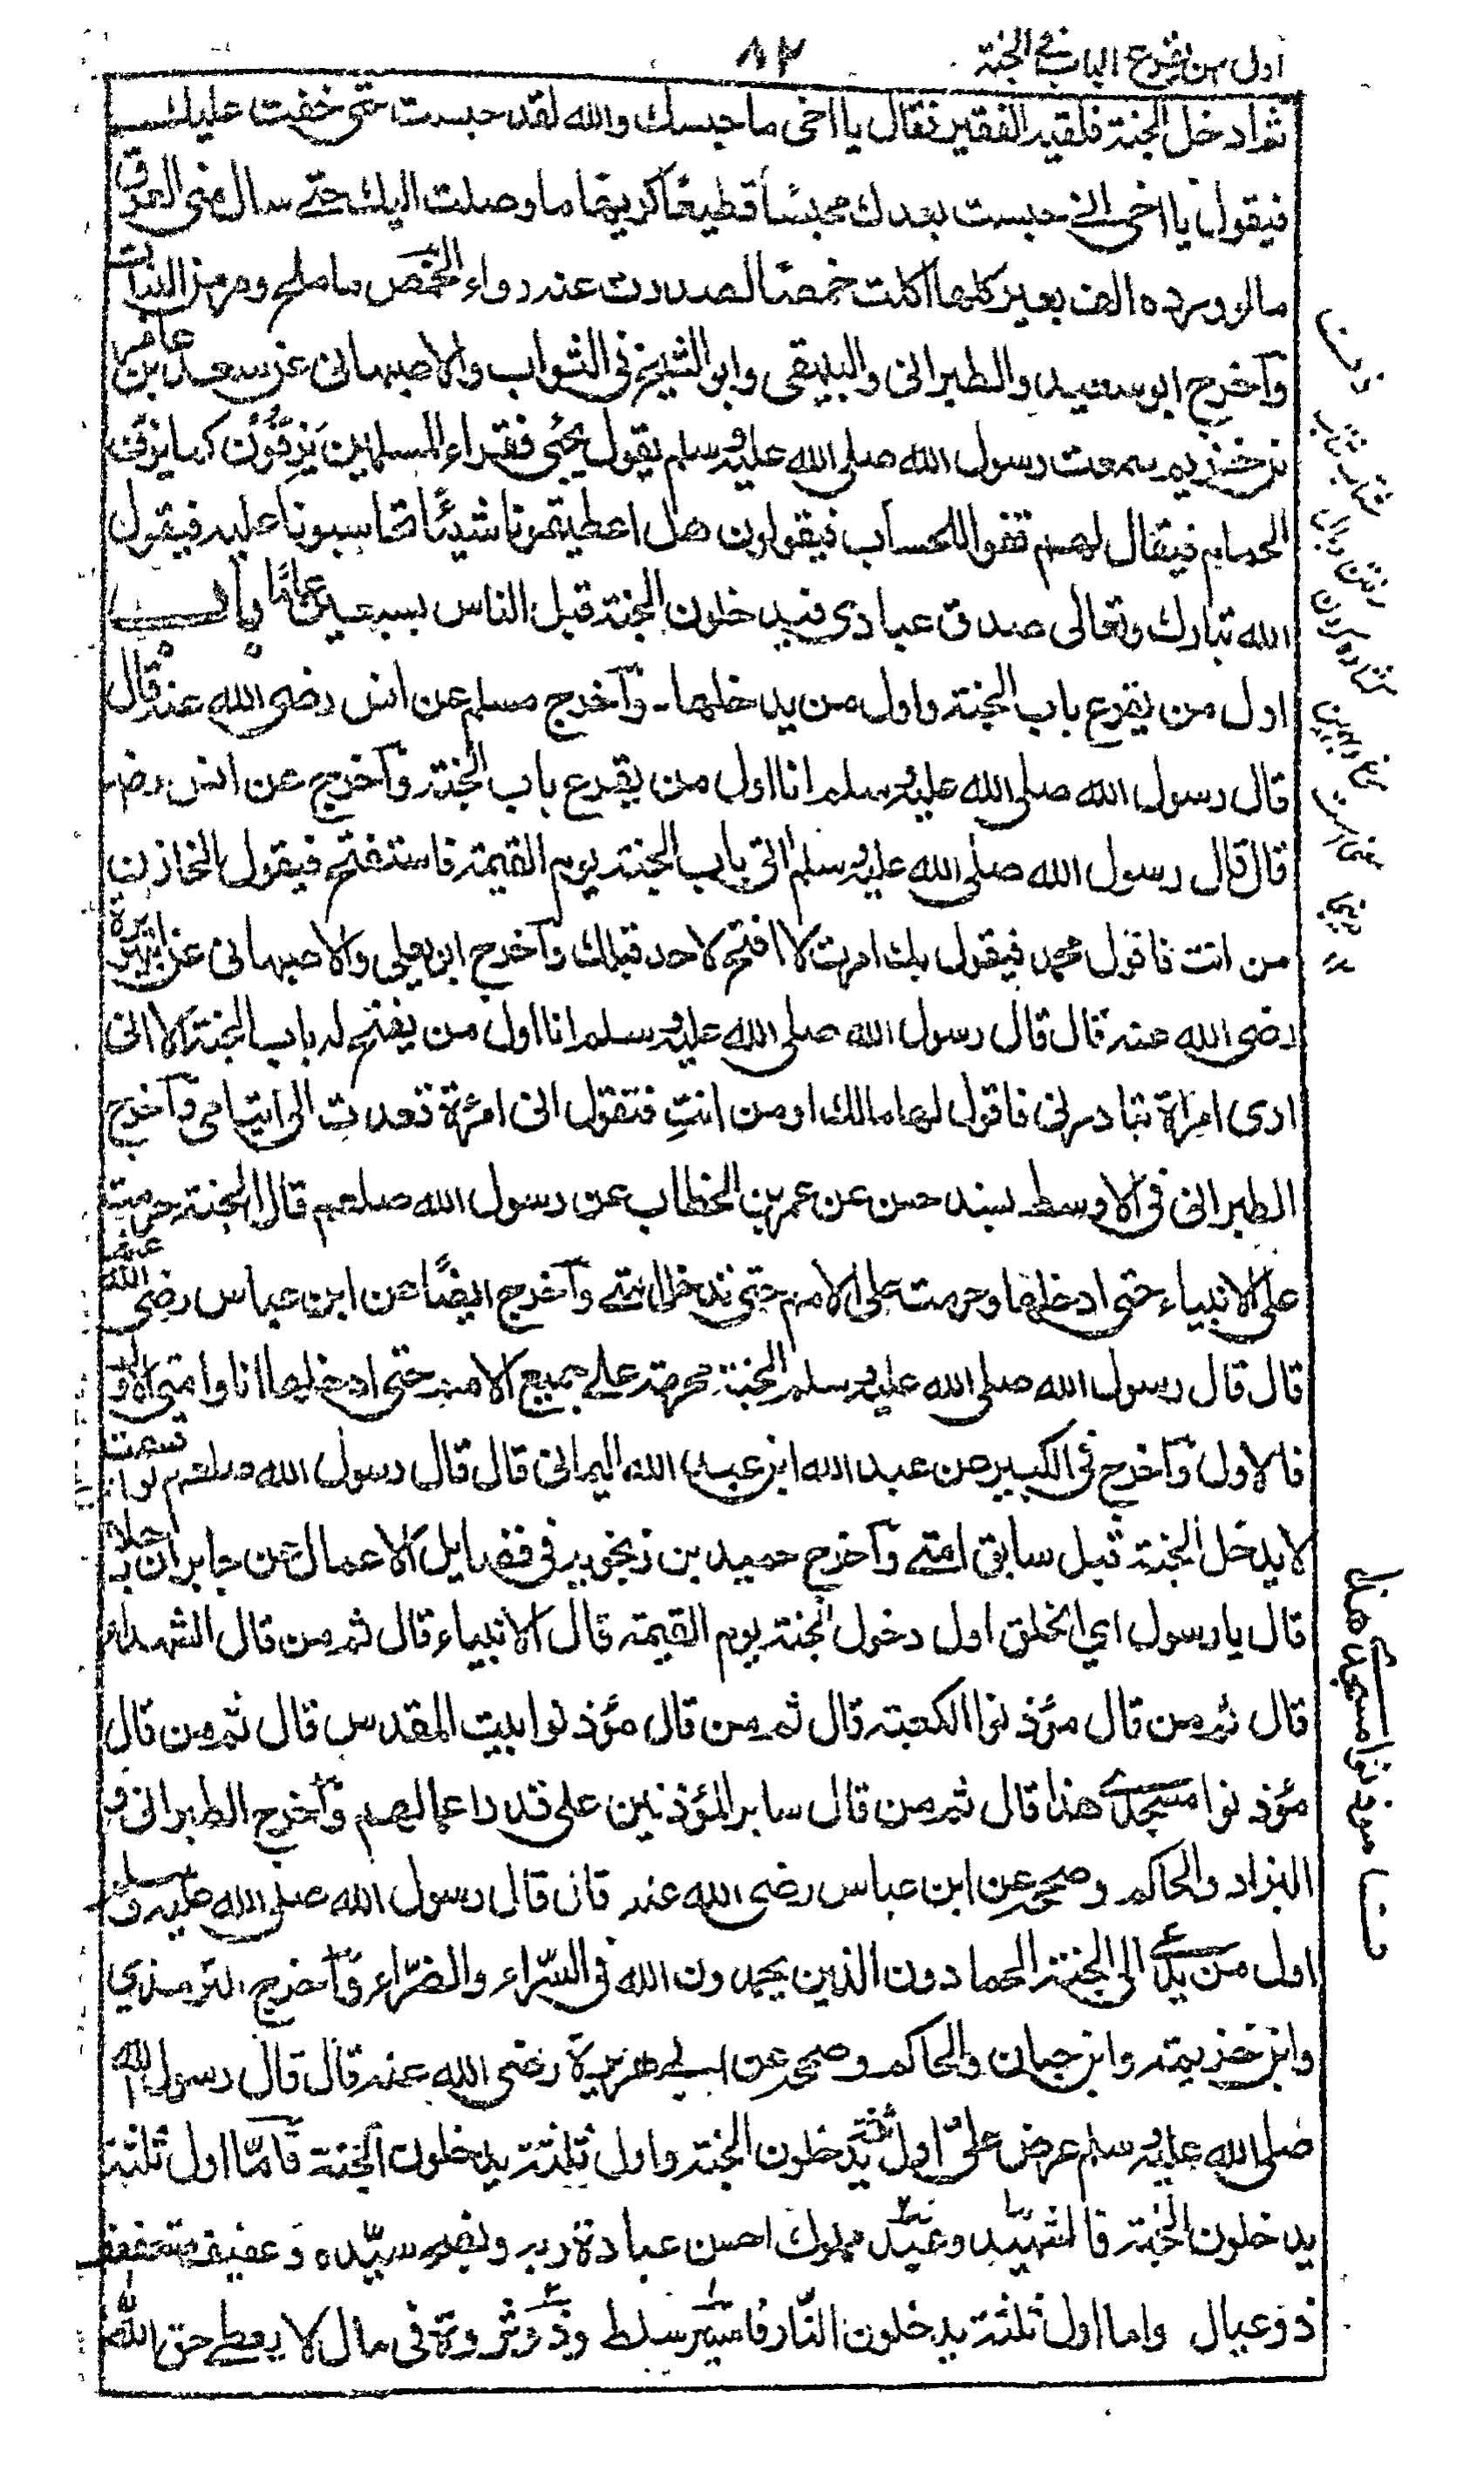 اول من يقرع الباب فى الجنة
٨٢
ثم ادخل الجنة فلقيه الفقير فقال يا اخى ما حبسك والله لقد حبست حتى خفت عليك
فيقول يا اخى انى حبست بعدك محبسًا قطيعًا كريهًا ما وصلت اليك حتى سال منى العرق
ما لو ورده الف بعير كلها اكلت خمصًا لصدرت عنه رواء الخمص ما ملح ومر من النبات
وآخرج ابو سعيد والطبرانى والبيهقى وابو الشيخ فى الثواب والاصبهانى عن سعد بن عامر
بن خذيم سمعت رسول الله صلى الله عليه وسلم يقول يجئ فقراء المسلمين يَزِفُّوْن كما يزف
الحمام فيقال لهم قفوا للحساب فيقولون هل اعطيتمونا شيئًا تحاسبونا عليه فيقول
الله تبارك وتعالى صدق عبادى فيدخلون الجنة قبل الناس بسبعين عامًا باب
اول من يقرع باب الجنة واول من يدخلها۔ وآخرج مسلم عن انس رضى الله عنه قال
قال رسول الله صلى الله عليه وسلم انا اول من يقرع باب الجنة وآخرج عن انس رضـ
قال قال رسول الله صلى الله عليه وسلم اٰتى باب الجنة يوم القيمة فاستفتح فيقول الخازن
من انت فاقول محمد فيقول بك امرت لا افتح لاحد قبلك وآخرج ابو يعلى والاصبهانى عن ابى هريرة
رضى الله عنه قال قال رسول الله صلى الله عليه وسلم انا اول من يفتح له باب الجنة الا انى
ارى امرأة تبادرنى فاقول لها مالك او من انتِ فتقول انى امرءة قعدت الى ايتامى وآخرج
الطبرانى فى الاوسط بسند حسن عن عمر بن الخطاب عن رسول الله صلعم قال الجنة حرمت
على الانبياء حتى ادخلها وحرمت على الامم حتى تدخل امتى وآخرج ايضًا عن ابن عباس رضى الله عنه
قال قال رسول الله صلى الله عليه وسلم الجنة محرمة على جميع الامم حتى ادخلها انا وامتى الاول
فالاول وآخرج فى الكبير عن عبد الله ابن عبد الله اليمانى قال قال رسول الله صلعم لو اقسمت
لا يدخل الجنة قبل سابق امتى وآخرج حميد بن زنجويه فى فضايل الاعمال عن جابر ان رجلا
قال يا رسول اي الخلق اول دخول الجنة يوم القيمة قال الانبياء قال ثم من قال الشهداء
قال ثم من قال مؤذنوا الكعبة قال ثم من قال مؤذنوا بيت المقدس قال ثم من قال
مؤذنوا مسجدى هذا قال ثم من قال ساير المؤذنين على قدر اعمالهم وآخرج الطبرانى و
البزار والحاكم وصححه عن ابن عباس رضى الله عنه قال قال رسول الله صلى الله عليه وسلم
اول من يدعى الى الجنة الحمادون الذين يحمدون الله فى السّراء والضرّاء وآخرج الترمذي
وابن خزيمة وابن حبان والحاكم وصححه عن ابى هريرة رضى الله عنه قال قال رسول الله
صلى الله عليه وسلم عرض علىّ اول ثلثة يدخلون الجنة واول ثلثة يدخلون الجنة فامّا اول ثلثة
يدخلون الجنة فالشهيد وعبد مملوك احسن عبادة ربه ونصح سيّده وعفيف متعفف
ذو عيال واما اول ثلثة يدخلون النّار فامير مسلط وذو ثروة فى مال لا يعطى حق الله
موذنوا مسجدى هذا